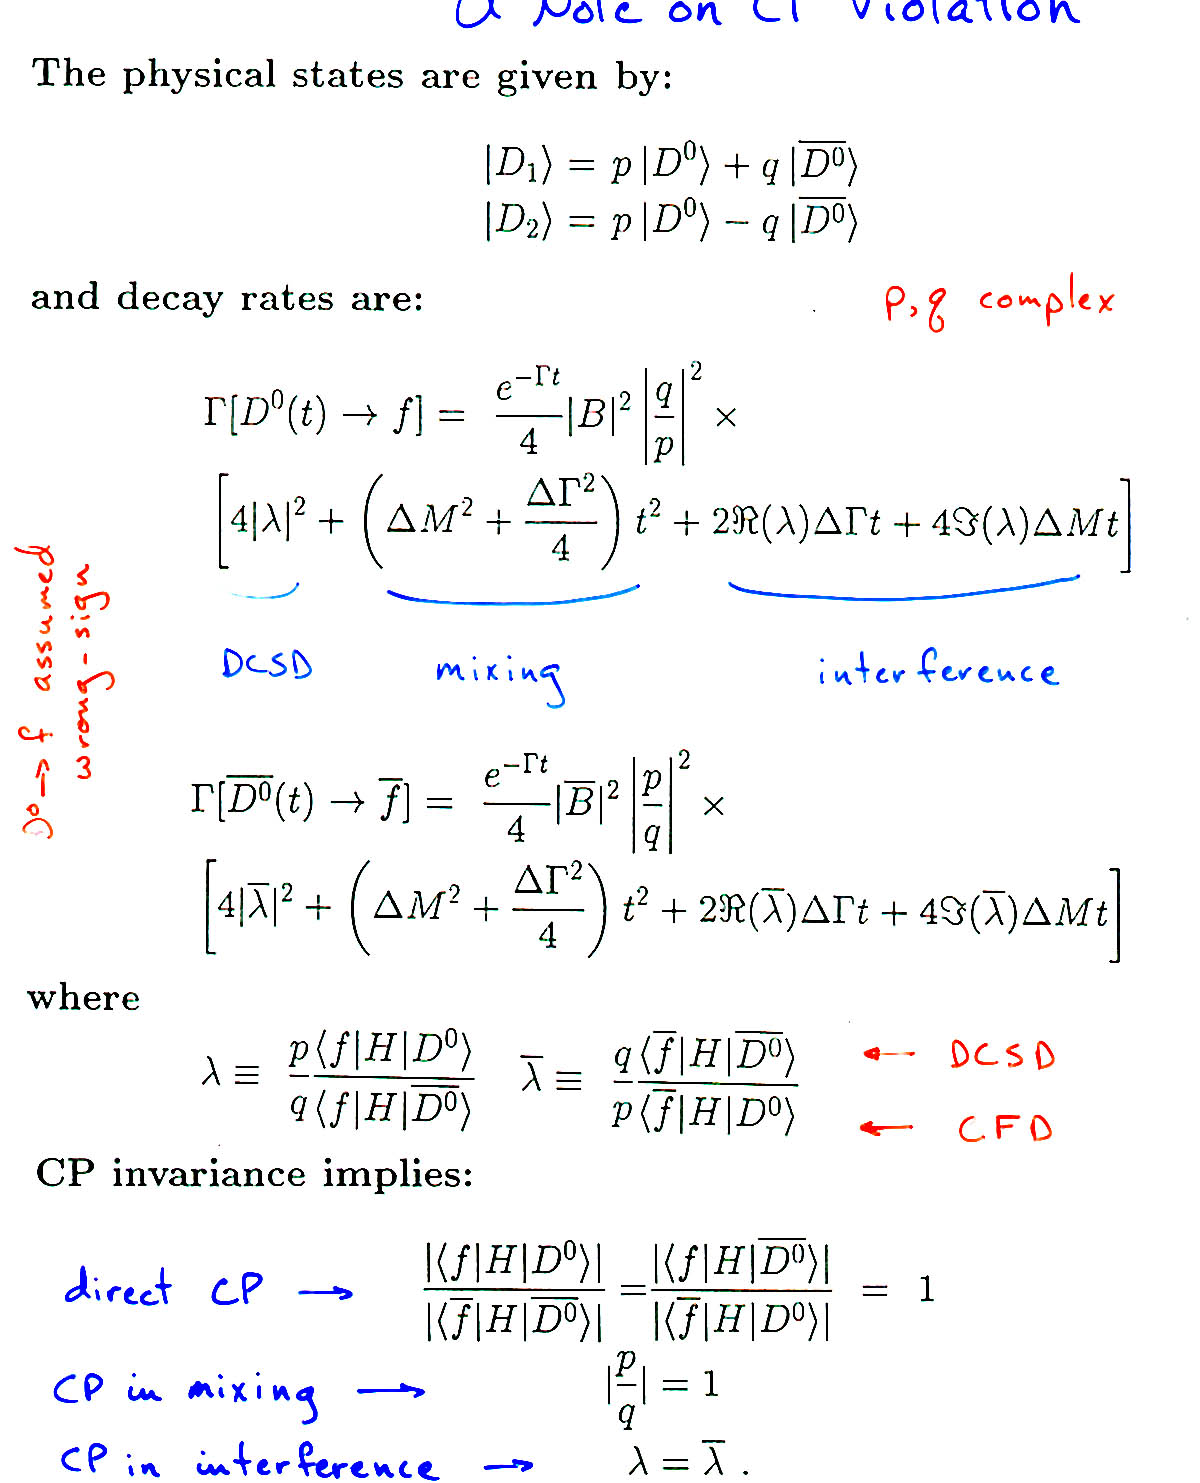 A Note on CP Violation
The physical states are given by:
|D₁⟩ = p |D⁰⟩ + q |D̅⁰̅⟩
|D₂⟩ = p |D⁰⟩ − q |D̅⁰̅⟩
and decay rates are:
p, q complex
Γ[D⁰(t) → f] = e^{−Γt}/4 |B|² |q/p|² ×
[4|λ|² + (ΔM² + ΔΓ²/4) t² + 2ℜ(λ)ΔΓt + 4ℑ(λ)ΔMt]
DCSD mixing interference
D⁰ → f assumed
wrong-sign
Γ[D̅⁰̅(t) → f̅] = e^{−Γt}/4 |B̅|² |p/q|² ×
[4|λ̅|² + (ΔM² + ΔΓ²/4) t² + 2ℜ(λ̅)ΔΓt + 4ℑ(λ̅)ΔMt]
where
λ ≡ p⟨f|H|D⁰⟩ / q⟨f|H|D̅⁰̅⟩ λ̅ ≡ q⟨f̅|H|D̅⁰̅⟩ / p⟨f̅|H|D⁰⟩ ← DCSD
← CFD
CP invariance implies:
direct CP → |⟨f|H|D⁰⟩| / |⟨f̅|H|D̅⁰̅⟩| = |⟨f|H|D̅⁰̅⟩| / |⟨f̅|H|D⁰⟩| = 1
CP in mixing → |p/q| = 1
CP in interference → λ = λ̅ .